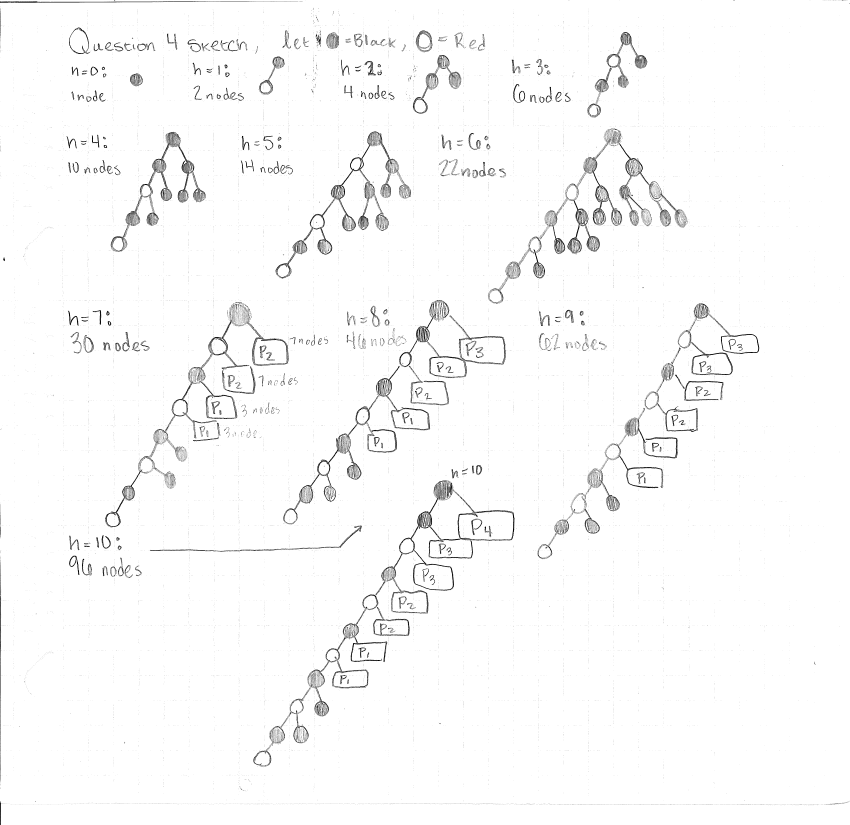 Question 4 Sketch, let ●=Black, O=Red
h=0:
1node
h=1:
2 nodes
h=2:
4 nodes
h=3:
6 nodes
h=4:
10 nodes
h=5:
14 nodes
h=6:
22 nodes
h=7:
30 nodes
P2 7nodes
P2 7nodes
P1 3 nodes
P1 3node
h=8:
46 nodes
P3
P2
P2
P1
P1
h=9:
62 nodes
P3
P3
P2
P2
P1
P1
h=10:
96 nodes
h=10
P4
P3
P3
P2
P2
P1
P1